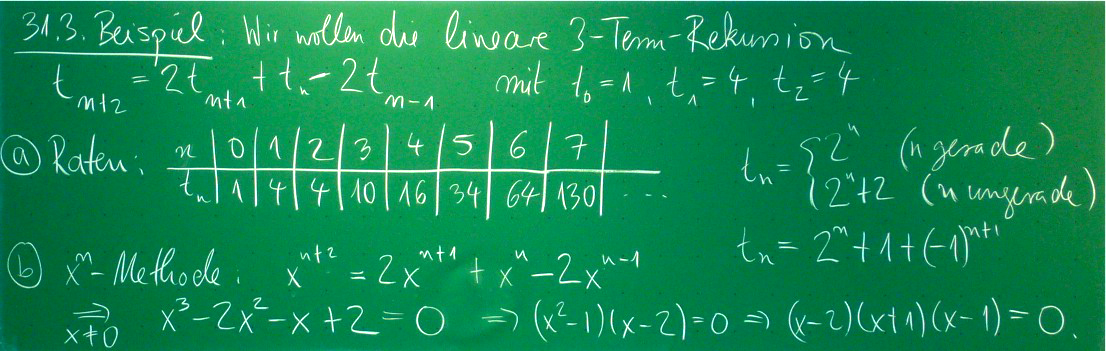 31.3. Beispiel: Wir wollen die lineare 3-Term-Rekursion
t_{n+2} = 2t_{n+1} + t_n - 2t_{n-1} mit t_0 = 1, t_1 = 4, t_2 = 4
(a) Raten: n | 0 | 1 | 2 | 3 | 4 | 5 | 6 | 7 |
t_n | 1 | 4 | 4 | 10 | 16 | 34 | 64 | 130 | ...
t_n = { 2^n (n gerade)
2^n+2 (n ungerade)
t_n = 2^n + 1 + (-1)^{n+1}
(b) x^n-Methode: x^{n+2} = 2x^{n+1} + x^n - 2x^{n-1}
⇒ x≠0 x^3 - 2x^2 - x + 2 = 0 ⇒ (x^2-1)(x-2) = 0 ⇒ (x-2)(x+1)(x-1) = 0.